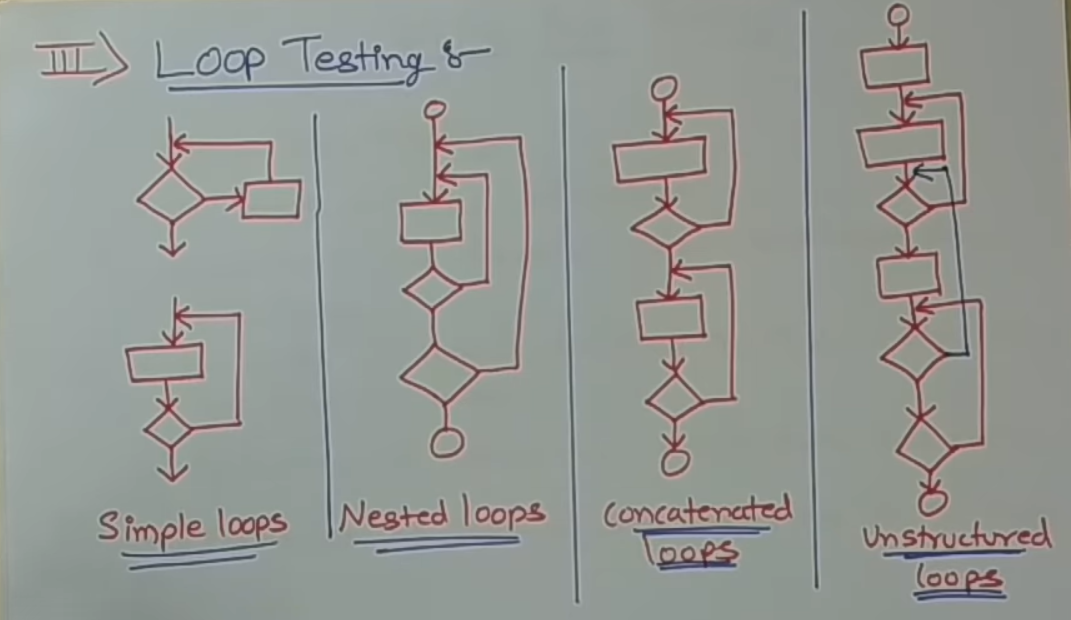 III⇒ Loop Testing :-
Simple loops
Nested loops
Concatenated
loops
Unstructured
loops